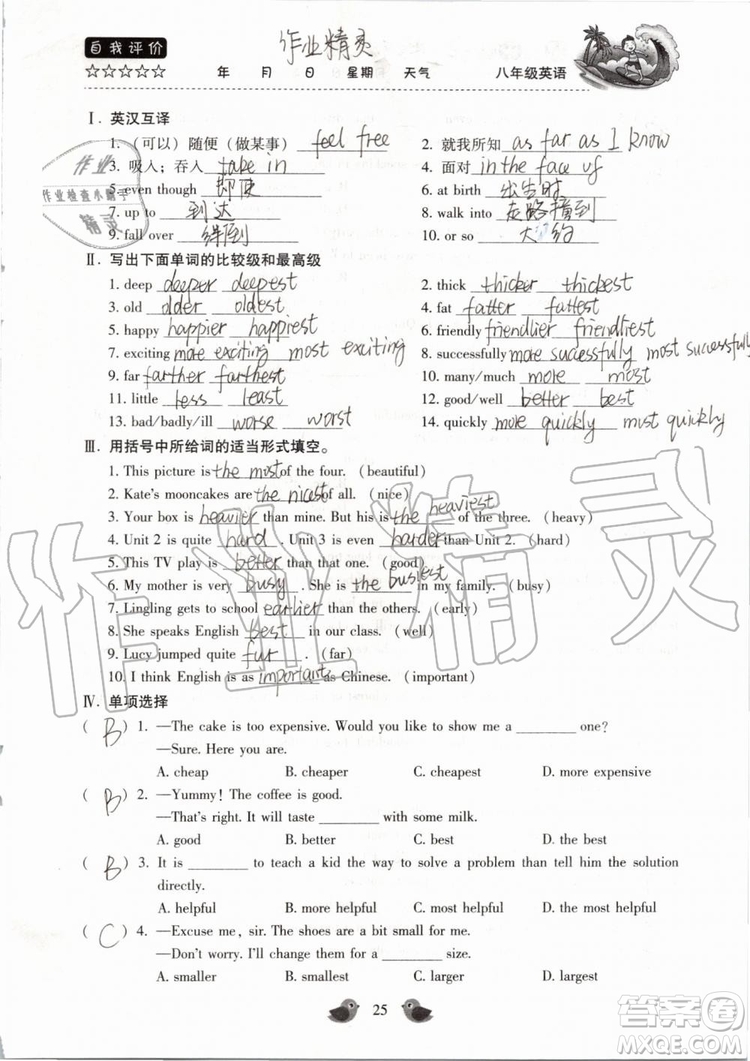 自我评价
☆☆☆☆☆
作业精灵
年 月 日 星期 天气
八年级英语
Ⅰ. 英汉互译
1. （可以）随便（做某事） feel free 2. 就我所知 as far as I know
3. 吸入；吞入 take in 4. 面对 in the face of
5. even though 即使 6. at birth 出生时
7. up to 到达 8. walk into 走路撞到
9. fall over 绊倒 10. or so 大约
Ⅱ. 写出下面单词的比较级和最高级
1. deep deeper deepest 2. thick thicker thickest
3. old older oldest 4. fat fatter fattest
5. happy happier happiest 6. friendly friendlier friendliest
7. exciting more exciting most exciting 8. successfully more successfully most successfully
9. far farther farthest 10. many/much more most
11. little less least 12. good/well better best
13. bad/badly/ill worse worst 14. quickly more quickly most quickly
Ⅲ. 用括号中所给词的适当形式填空。
1. This picture is the most of the four. (beautiful)
2. Kate's mooncakes are the nicest of all. (nice)
3. Your box is heavier than mine. But his is the heaviest of the three. (heavy)
4. Unit 2 is quite hard . Unit 3 is even harder than Unit 2. (hard)
5. This TV play is better than that one. (good)
6. My mother is very busy . She is the busiest in my family. (busy)
7. Lingling gets to school earlier than the others. (early)
8. She speaks English best in our class. (well)
9. Lucy jumped quite fur . (far)
10. I think English is as important as Chinese. (important)
Ⅳ. 单项选择
( B ) 1. —The cake is too expensive. Would you like to show me a ________ one?
—Sure. Here you are.
A. cheap B. cheaper C. cheapest D. more expensive
( B ) 2. —Yummy! The coffee is good.
—That's right. It will taste ________ with some milk.
A. good B. better C. best D. the best
( B ) 3. It is ________ to teach a kid the way to solve a problem than tell him the solution
directly.
A. helpful B. more helpful C. most helpful D. the most helpful
( C ) 4. —Excuse me, sir. The shoes are a bit small for me.
—Don't worry. I'll change them for a ________ size.
A. smaller B. smallest C. larger D. largest
25
作业
作业检查小助手
精灵
作业精灵
答案圈
MXQE.COM